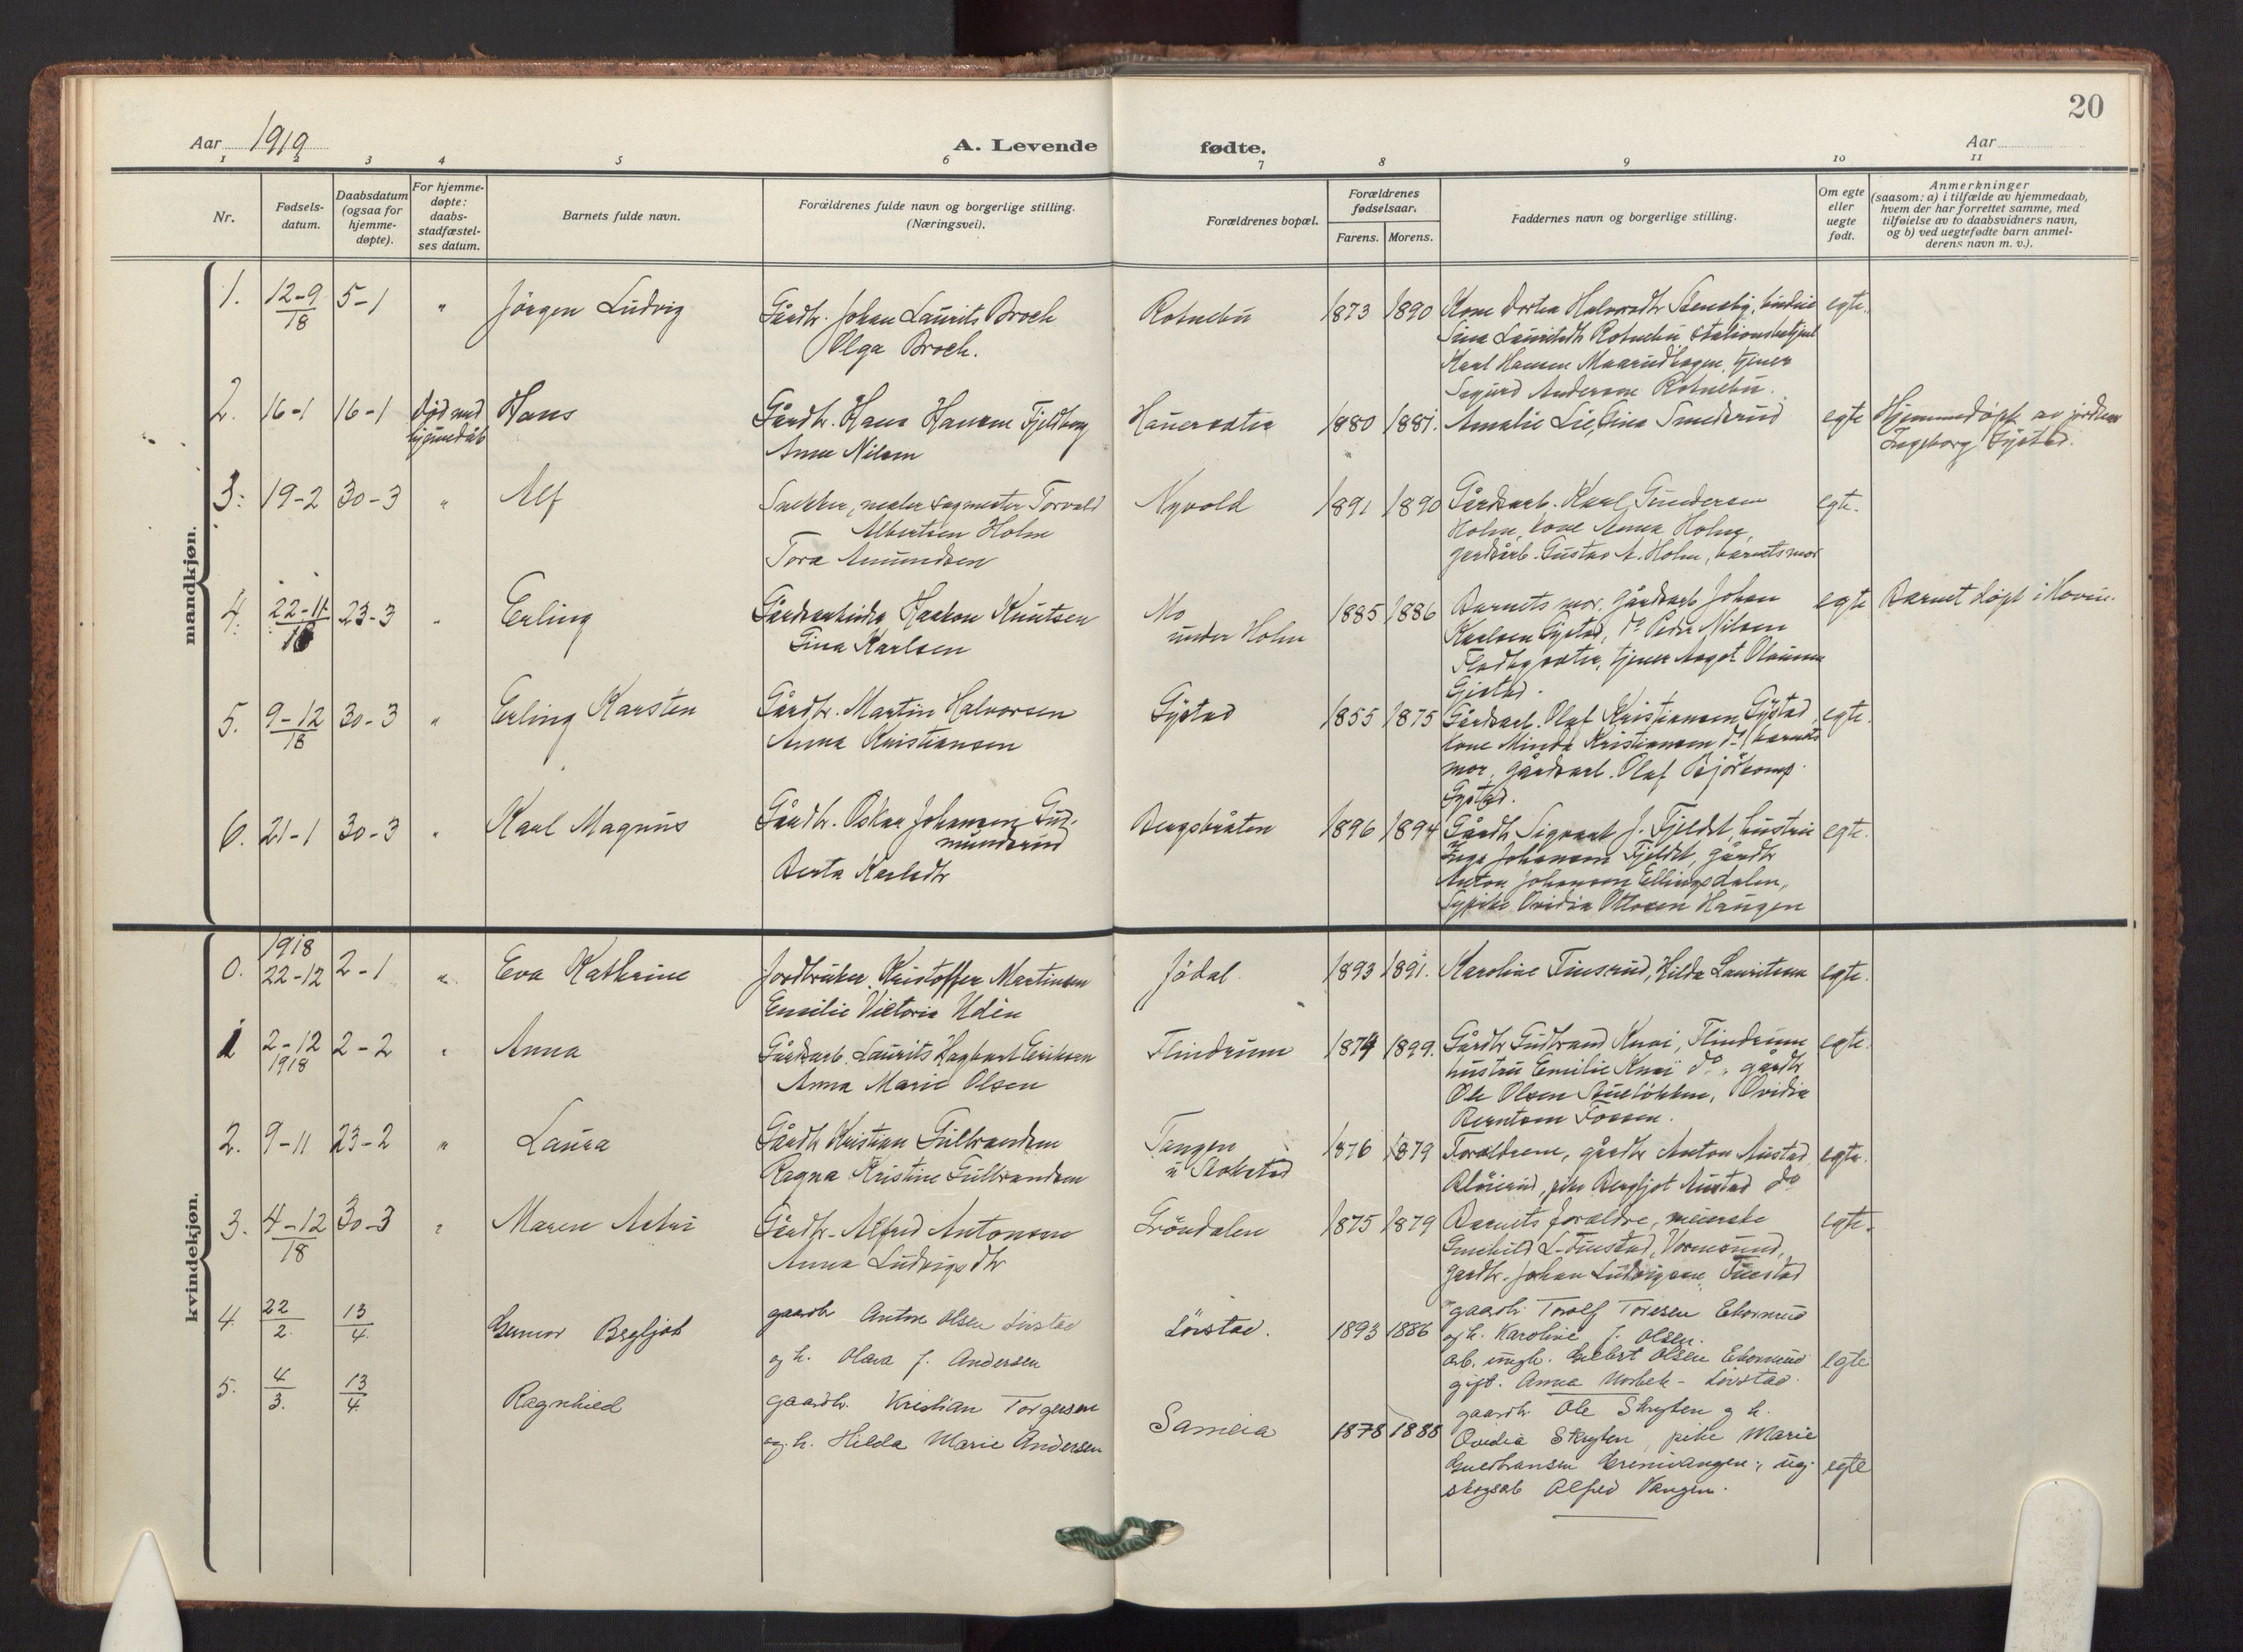 20
Aar 1919
A. Levende fødte.
Aar
1 2 3 4 5 6 7 8 9 10 11
Nr.
Fødsels-
datum.
Daabsdatum
(ogsaa for
hjemme-
døpte).
For hjemme-
døpte:
daabs-
stadfæstel-
ses datum.
Barnets fulde navn.
Forældrenes fulde navn og borgerlige stilling.
(Næringsvei).
Forældrenes bopæl.
Forældrenes
fødselsaar.
Farens. Morens.
Faddernes navn og borgerlige stilling.
Om egte
eller
uegte
født.
Anmerkninger
(saasom: a) i tilfælde av hjemmedaab,
hvem der har forrettet samme, med
tilføielse av to daabsvidners navn,
og b) ved uegtefødte barn anmel-
derens navn m. v.).
mandkjøn.
1. 12-9/18 5-1 " Jörgen Ludvig
Gårdbr. Johan Laurits Broch
Olga Broch.
Rotnebu 1873 1890
Kone Dortea Halvorsdtr Stensby, hustru
Sina Lauritsdtr Rotnebu
Karl Hansen Maarudhagen, tjener
Sigurd Andersen Rotnebu.
egte.
2. 16-1 16-1 Död ved
hjemmedåb
Hans
Gårdbr. Hans Hansen Fjeldberg
Anna Nilsen
1880 1881.
Amalie Lie, Gina Smederud
egte
Hjemmedöpt av jordmor
Ingeborg Gystad.
3. 19-2 30-3 " Alf
Snekker, maler Torvald
Albertsen Holm
Tora Amundsen
Nyvold 1891 1890
Gårdsarb. Karl Gundersen
Holm, kone Anna Holm,
gårdsarb. Gustav A. Holm, barnets mor
egte.
4. 22-11/18 23-3 " Erling
Gårdsarbeider Haakon Knutsen
Gina Karlsen
Mo
under Holm
1885 1886
Barnets mor, gårdsarb Johan
Karlsen Gystad, do Peder Nilsen
tjener Aagot Olaussen
Gistad.
egte
Barnet döpt i Hovin.
5. 9-12/18 30-3 " Erling Karsten
Gårdbr. Martin Halvorsen
Anna Kristiansen
Gystad 1855 1875
Gårdsarb. Olaf Kristiansen Gystad,
kone Minda Kristiansen do, barnets
mor, gårdsarb. Olaf
Gystad.
egte.
6. 21-1 30-3 " Karl Magnus
Gårdbr. Oskar Johansen Gud-
munderud
Berta Karlsdtr
Bergsbråten 1896 1894
Gårdbr Sigvart J. Fjeldet, hustru
Inga Johansen Fjeldet, gårdbr
Anton Johansen Ellingsdalen,
Sypike Ovidia Ottosen Haugen
egte.
kvindekjøn.
0. 1918
22-12 2-1 " Eva Kathrine
Jordbruker Kristoffer Martinsen
Emilie Victoria Udén
Jödal 1893 1891.
Karoline Finsrud, Hilda Lauritsen
egte.
1 2-12
1918 2-2 " Anna
Gårdsarb. Laurits Hagbart Eriksen
Anna Marie Olsen
Flindrum 1874 1899.
Gårdbr Gudbrand Knai, Flindrum
hustru Emilie Knai do, gårdbr
Ole Olsen Ovidia
Berntsen Fossen.
egte.
2. 9-11 23-2 " Laura
Gårdbr Kristian Gulbrandsen
Ragna Kristine Gulbrandsen
Tangen
u Skolstad
1876 1879
Forældrene, gårdbr Anton Austad
pike Bergljot Austad do
egte.
3. 4-12/18 30-3 " Maren Astri
Gårdbr. Alfred Antonsen
Anna Ludvigsdtr
Gröndalen 1875 1879
Barnets forældre, meierske
Gunhild L. Finstad, Vormsund,
gardbr. Johan Ludvigsen Finstad
egte.
4. 22/2. 13/4. Gunvor Bergljot
gaardbr Anton Olsen Lörstad
og h. Olava J. Andersen
Lörstad. 1893 1886
gaardb. Torolf Toresen Ekornrud
og h. Karoline J. Olsen.
arb. ungk. Gilbert Olsen Ekornrud
gift. Anna Morbek - Lörstad.
egte
5. 4/3. 13/4. Ragnhild
gaardbr. Kristian Torgersen
og h. Hilda Marie Andersen
Sameia 1878 1888
gaardb. Ole Skryten og h.
Ovidia Skryten, pike Marie
Guldbransen Grenivangen, ug.
skogsarb Alfred Vangen.
egte